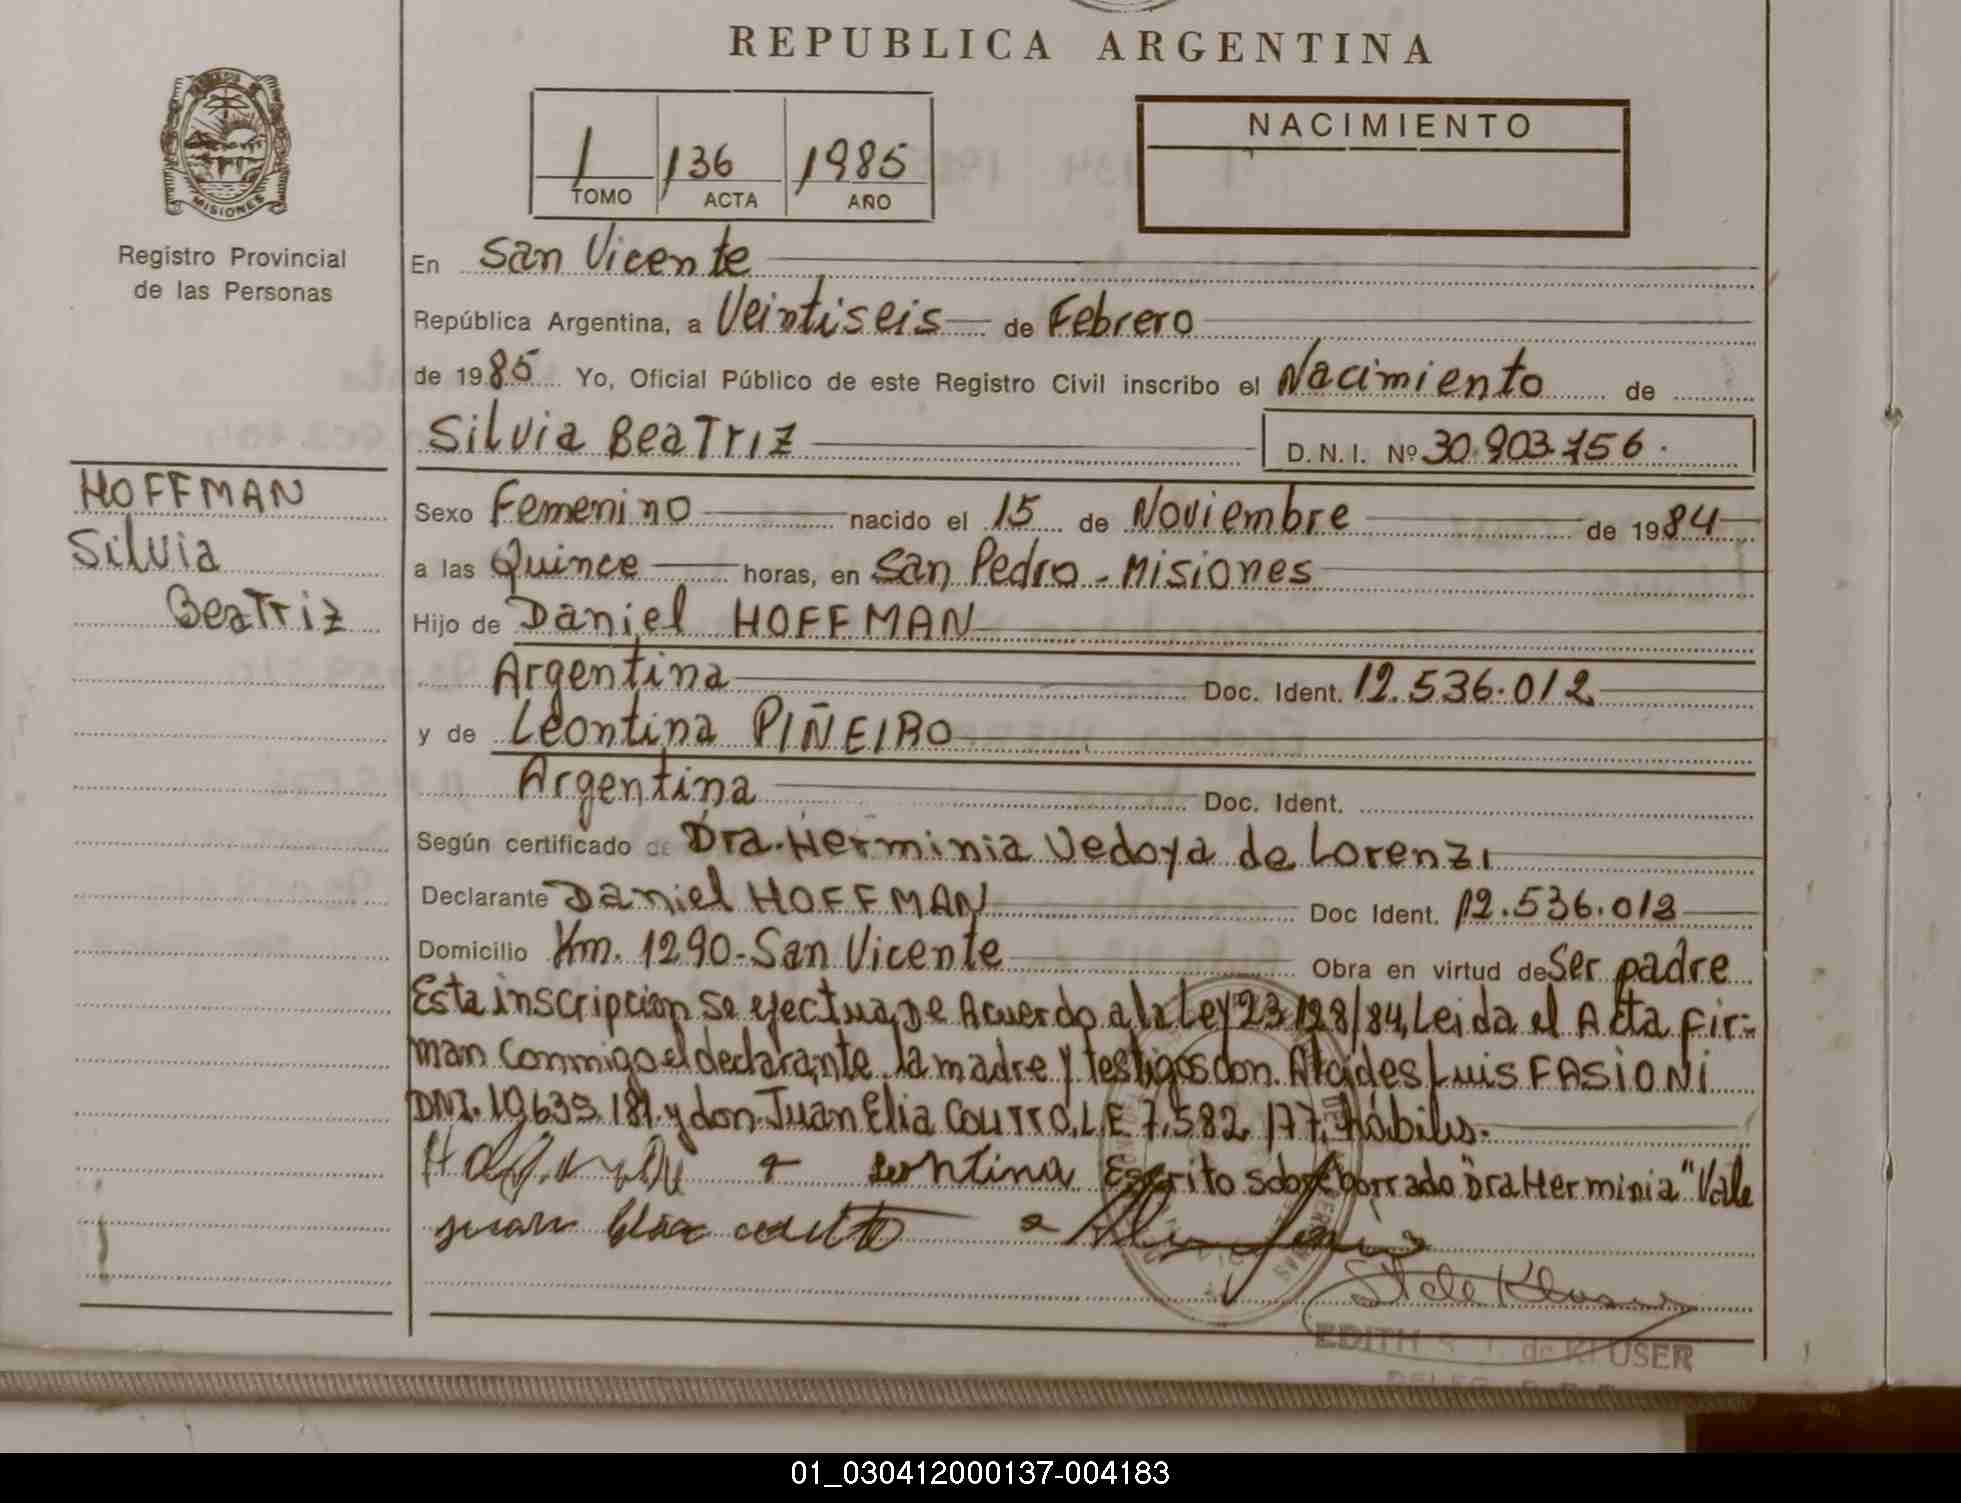 REPUBLICA ARGENTINA
1 136 1985
TOMO ACTA AÑO
NACIMIENTO
MISIONES
Registro Provincial
de las Personas
En San Vicente
República Argentina, a Veintiseis de Febrero
de 1985 Yo, Oficial Público de este Registro Civil inscribo el Nacimiento de
Silvia Beatriz D.N.I. Nº 30.903.156.
HOFFMAN
Silvia
Beatriz
Sexo Femenino nacido el 15 de Noviembre de 1984
a las Quince horas, en San Pedro - Misiones
Hijo de Daniel HOFFMAN
Argentina Doc. Ident. 12.536.012
y de Leontina PIÑEIRO
Argentina Doc. Ident.
Según certificado de Dra. Herminia Vedoya de Lorenzi
Declarante Daniel HOFFMAN Doc Ident. 12.536.012
Domicilio Km. 1290 - San Vicente Obra en virtud de Ser padre
Esta inscripcion se efectua, De Acuerdo a la Ley 23.128/84, Leida el Acta fir-
man Conmigo el declarante la madre y testigos don. Alcides Luis FASIONI
DNI. y don. Juan Elia COUTTO, L.E 7.582.177, hábiles.-
Leontina Escrito sobre borrado "Dra Herminia" Vale
Juan Elia
EDITH de KLUSER
01_030412000137-004183